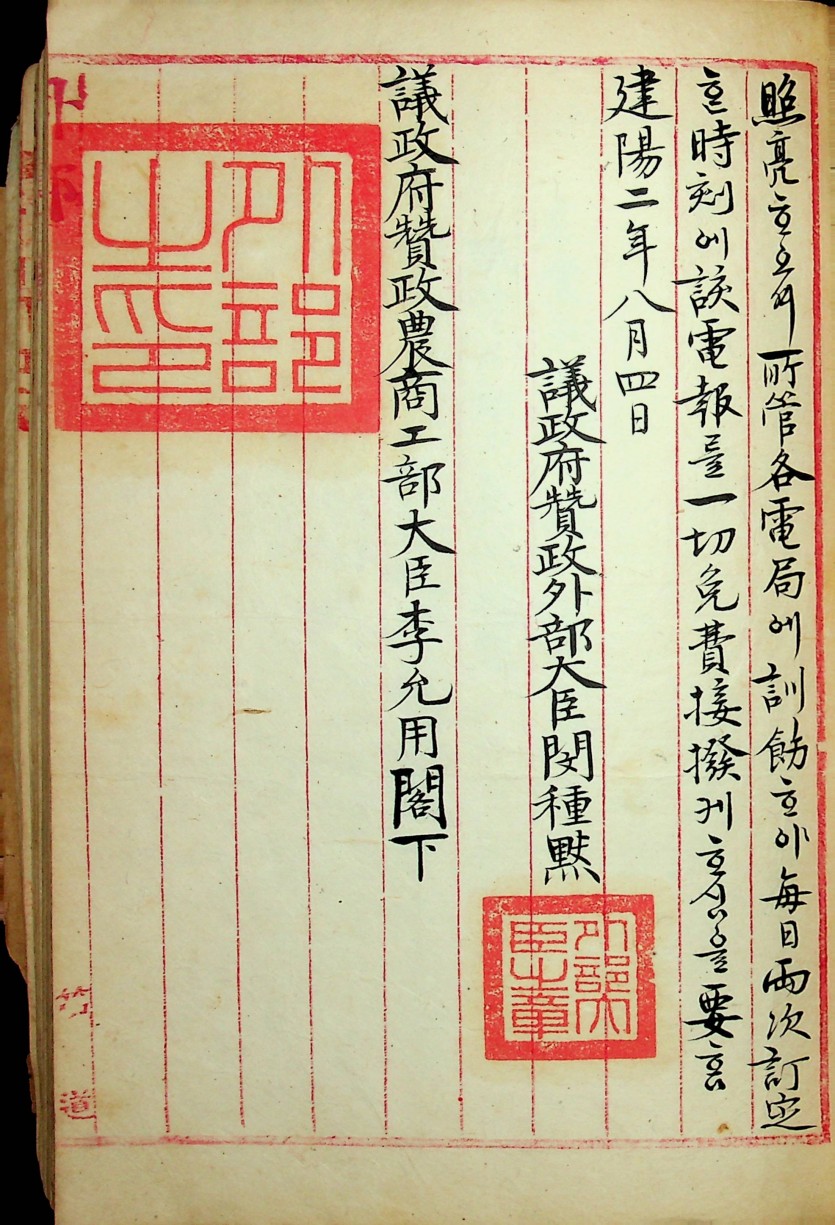 照亮ᄒᆞ오셔 所管各電局에 訓飭ᄒᆞ야 每日兩次訂定
ᄒᆞᆫ時刻에 該電報를 一切免費接撥케 ᄒᆞ심을 要홈
建陽二年八月四日
議政府贊政外部大臣閔種默
外部大臣之章
議政府贊政農商工部大臣李允用閣下
外部之印
外部
道